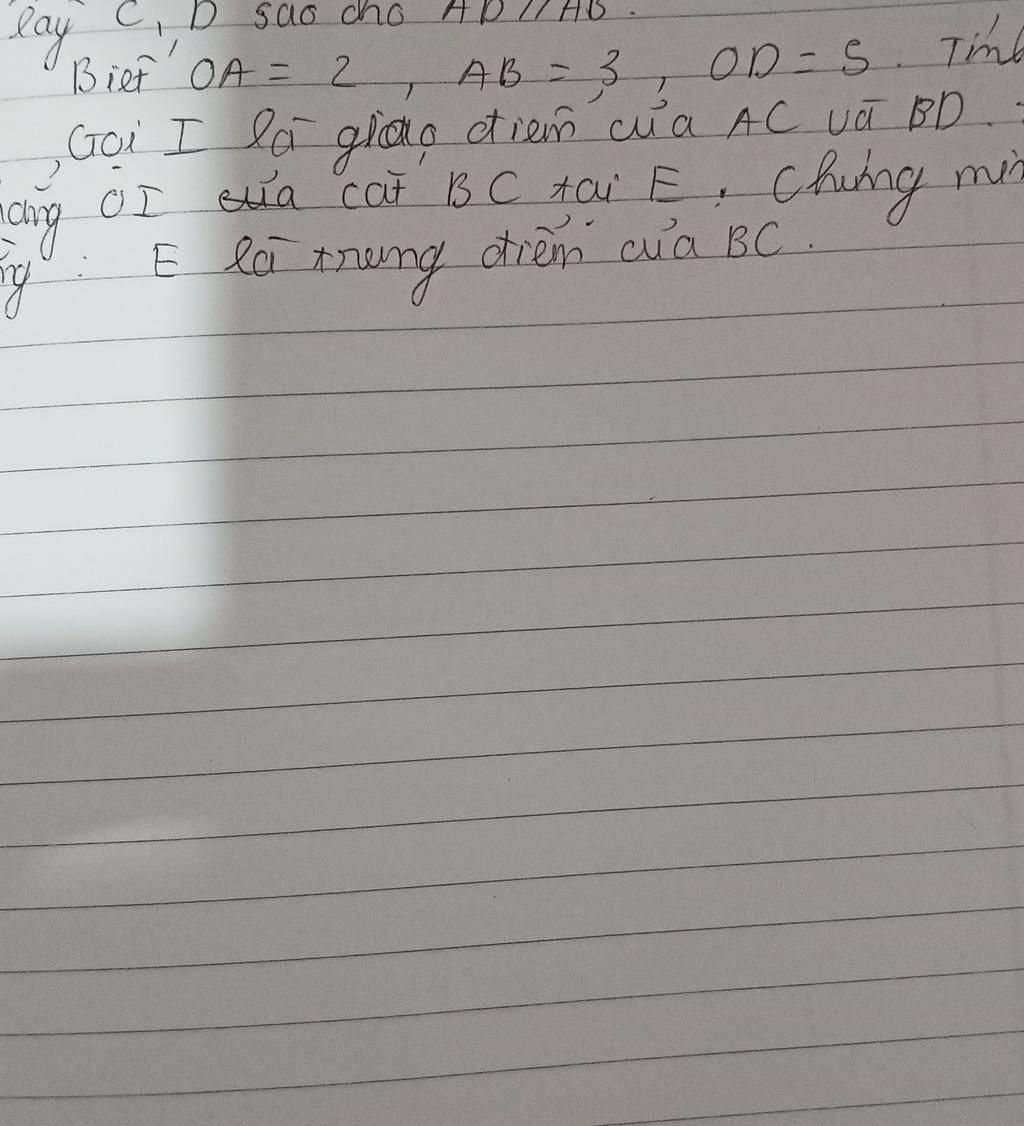 lấy C, D sao cho AD // AB.
Biết OA = 2, AB = 3, OD = 5. Tính
Gọi I là giao điểm của AC và BD.
OI của cắt BC tại E. Chứng min
E là trung điểm của BC.